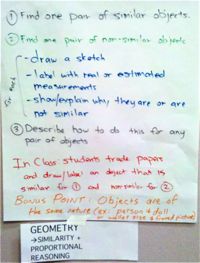 ① Find one pair of similar objects.
② Find one pair of non-similar objects
For each
- draw a sketch
- label with real or estimated
measurements
- show/explain why they are or are
not similar
③ Describe how to do this for any
pair of objects
In Class: students trade papers
and draw/label an object that is
similar for ① and non similar for ②
BONUS POINT: Objects are of
the same nature (ex: person + doll
or wallet size + framed picture)
GEOMETRY
→SIMILARITY +
PROPORTIONAL
REASONING